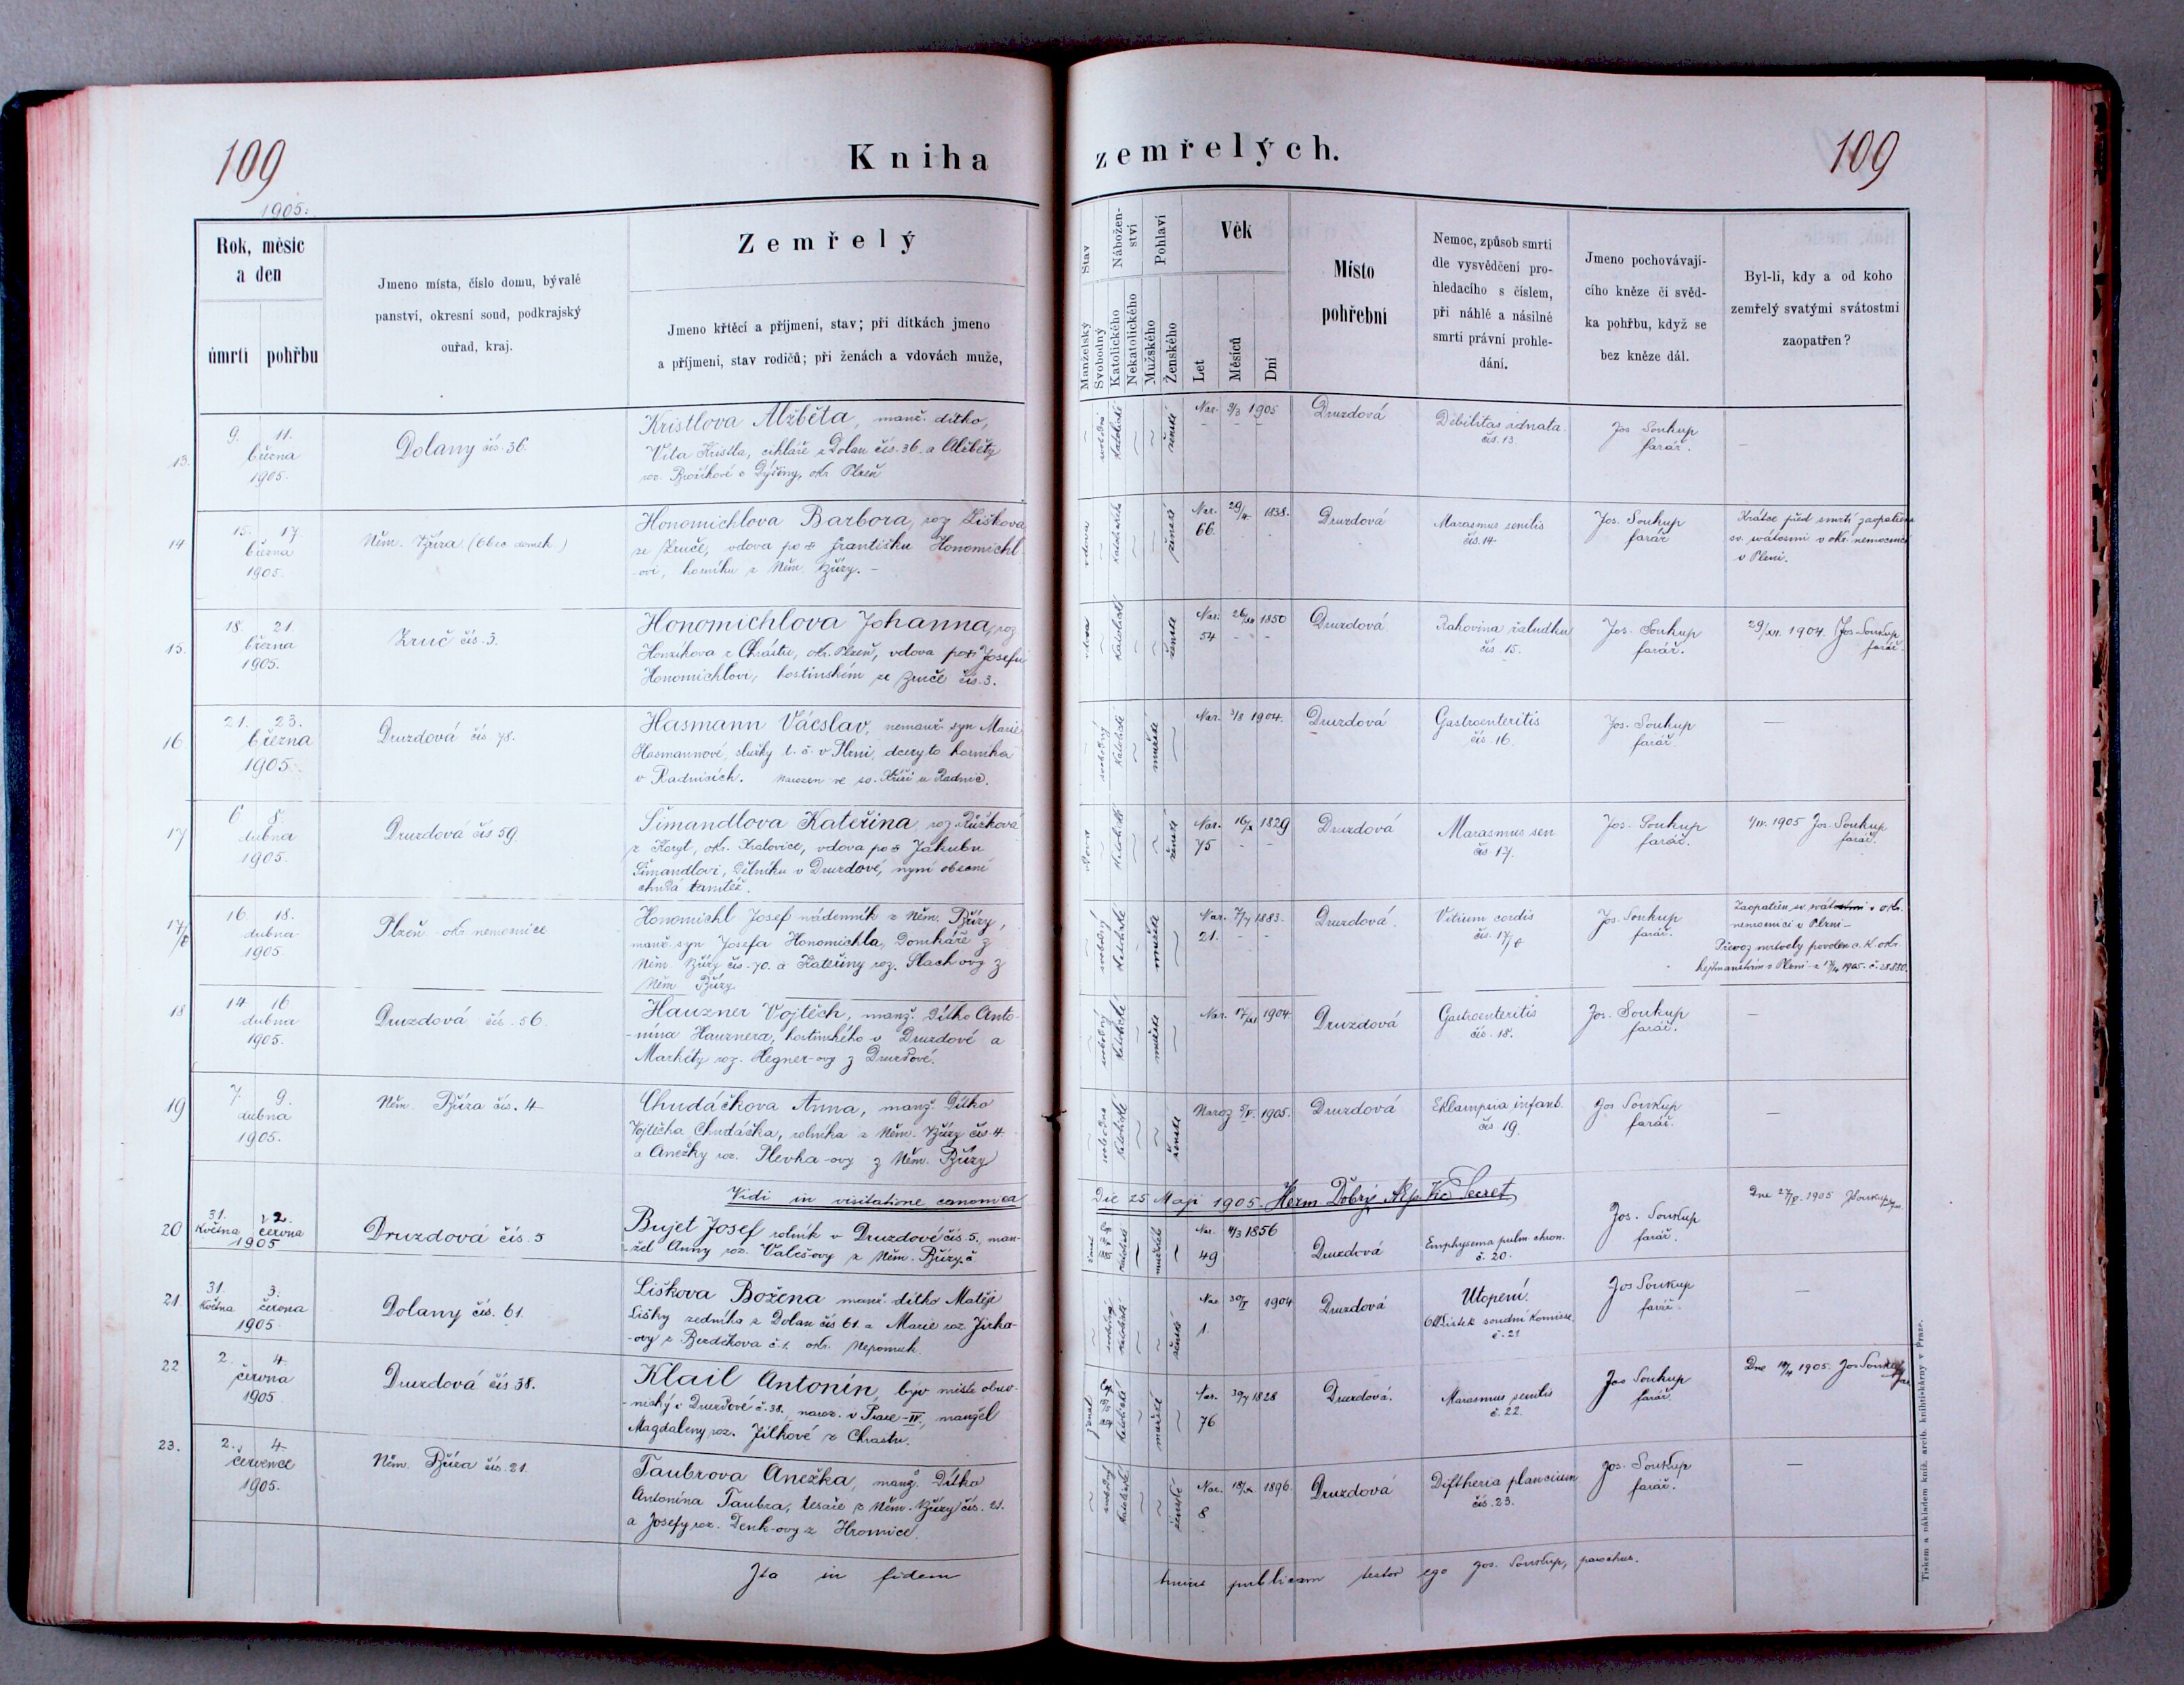 109
Kniha
zemřelých.
109
1905.
Rok, měsíc
a den
úmrtí
pohřbu
Jmeno místa, číslo domu, bývalé
panství, okresní soud, podkrajský
ouřad, kraj.
Zemřelý
Jmeno křtěcí a příjmení, stav; při dítkách jmeno
a příjmení, stav rodičů; při ženách a vdovách muže,
Stav
Manželský
Svobodný
Nábožen-
ství
Katolického
Nekatolického
Pohlaví
Mužského
Ženského
Věk
Let
Měsíců
Dní
Místo
pohřební
Nemoc, způsob smrti
dle vysvědčení pro-
hledacího s číslem,
při náhlé a násilné
smrti právní prohle-
dání.
Jmeno pochovávají-
cího kněze či svěd-
ka pohřbu, když se
bez kněze dál.
Byl-li, kdy a od koho
zemřelý svatými svátostmi
zaopatřen?
13.
9. 11.
března
1905.
Dolany čís. 36.
Kristlova Alžběta, manž. dítko,
Víta Kristla, cihláře z Dolan čís. 36. a Alžběty
okr. Plzeň
svobodná
katolické
ženské
Nar. 9/3 1905
Druzdová
Debilitas adnata.
čís. 13.
Jos Soukup
farář.
14
15. 17.
března
1905.
Něm. Bříza (Obec. domek.)
Honomichlova Barbora, roz Lišková
ze Zruče, vdova po † Františku Honomichl
-ovi, horníku z Něm. Břízy. -
vdova
katolické
ženské
Nar. 29/4 1838.
66.
Druzdová
Marasmus senilis
čís. 14.
Jos. Soukup
farář
Krátce před smrtí zaopatřena
sv. svátostmi v okr. nemocnici
v Plzni.
15.
18. 21.
března
1905.
Zruč čís. 3.
Honomichlova Johanna, roz
z Chrástu, okr. Plzeň, vdova po † Josefu
Honomichlovi, hostinském ze Zruče čís. 3.
vdova
katolické
ženské
Nar. 26/XII 1850
54 - -
Druzdová
Rakovina žaludku
čís. 15.
Jos. Soukup
farář.
29/XII. 1904. Jos Soukup
farář.
16
21. 23.
března
1905.
Druzdová čís 78.
Hasmann Václav, nemanž. syn Marie
Hasmannové, služky t. č. v Plzni, dcery to horníka
v Radnicích. Narozen ve sv. Kříži u Radnic.
svobodný
katolické
mužské
Nar. 3/8 1904.
Druzdová
Gastroenteritis
čís. 16.
Jos. Soukup
farář.
—
17
6. 8.
dubna
1905.
Druzdová čís 59.
Šimandlova Kateřina, roz. Růžková
z Koryt, okr. Kralovice, vdova po † Jakubu
Šimandlovi, dělníku v Druzdové, nyní obecní
chudá tamtéž.
vdova
katolické
ženské
Nar. 16/X 1829
75 - -
Druzdová
Marasmus sen.
čís. 17.
Jos. Soukup
farář.
1/IV. 1905 Jos. Soukup
farář.
17/b
16. 18.
dubna
1905
Plzeň - okr. nemocnice
Honomichl Josef nádenník z Něm. Břízy,
manž. syn Josefa Honomichla, Domkáře z
Něm. Břízy čís. 70. a Kateřiny roz. Slach-ovy z
Něm Břízy.
svobodný
katolické
mužské
Nar. 7/7 1883.
21. - -
Druzdová.
Vitium cordis
čís. 17/b
Jos. Soukup
farář.
Zaopatřen sv. svátostmi v okr.
nemocnici v Plzni -
Převoz mrtvoly povolen c. k. okr.
hejtmanstvím v Plzni
18
14. 16
dubna
1905.
Druzdová čís. 56.
Hauzner Vojtěch, manž. Dítko Anto-
-nína Hauznera, hostinského v Druzdové a
Markéty roz. Hegner-ovy z Druzdové.
svobodný
katolické
mužské
Nar. 17/XI 1904
Druzdová
Gastroenteritis
čís. 18.
Jos. Soukup
farář.
—
19
7. 9.
dubna
1905.
Něm. Bříza čís. 4
Chudáčkova Anna, manž. Dítko
Vojtěcha Chudáčka, rolníka z Něm. Břízy čís 4.
a Anežky roz. Plevka-ovy z Něm. Břízy
svobodná
katolické
ženské
Naroz 1905.
Druzdová
Eklampsia infant.
čís 19.
Jos Soukup
farář.
—
Vidi in visitatione canonica
Die 25 Maji 1905. Herm. Vic Secret
20
31. 2.
Května června
1905
Druzdová čís. 5
Bujet Josef rolník v Druzdové čís 5., man-
-žel Anny roz. Valeš-ovy z Něm. Břízy č.
ženat
katolické
mužské
Nar. 4/3 1856
49
Druzdová
Emphysema pulm. chron.
č. 20.
Jos. Soukup
farář.
Dne 27/V. 1905 JSoukup
21.
31. 3.
Května června
1905
Dolany čís. 61.
Liškova Božena manž. dítko Matěje
Lišky zedníka z Dolan čís 61. a Marie roz. Jirka-
-ovy z Berdikova č. 1. okr. Nepomuk.
svobodná
katolické
ženské
Nar 30/V 1904
1.
Druzdová
Utopení.
Ohl. lístek soudní komisse.
č. 21
Jos Soukup
farář.
—
22
2. 4.
června
1905
Druzdová čís 38.
Klail Antonín, býv. místo obuv-
-nický v Druzdové č. 38., naroz. v Praze - IV., manžel
Magdaleny roz. Jílkové z Chrastu.
ženat
katolické
mužské
Nar. 30/7 1828
76
Druzdová.
Marasmus senilis
č. 22.
Jos Soukup
farář.
Dne 19/4 1905. Jos Soukup
23.
2. 4.
července
1905.
Něm. Bříza čís. 21.
Taubrova Anežka, manž. Dítko
Antonína Taubra, tesaře z Něm. Břízy čís. 21.
a Josefy roz. Denk-ovy z Hromice.
svobodná
katolické
ženské
Nar. 18/X. 1896.
8
Druzdová
Diftheria plancium
čís. 23.
Jos. Soukup
farář.
—
Ita in fidem
publicam testor ego Jos. Soukup, parochus.
Tiskem a nákladem kníž. arcib. knihtiskárny v Praze.